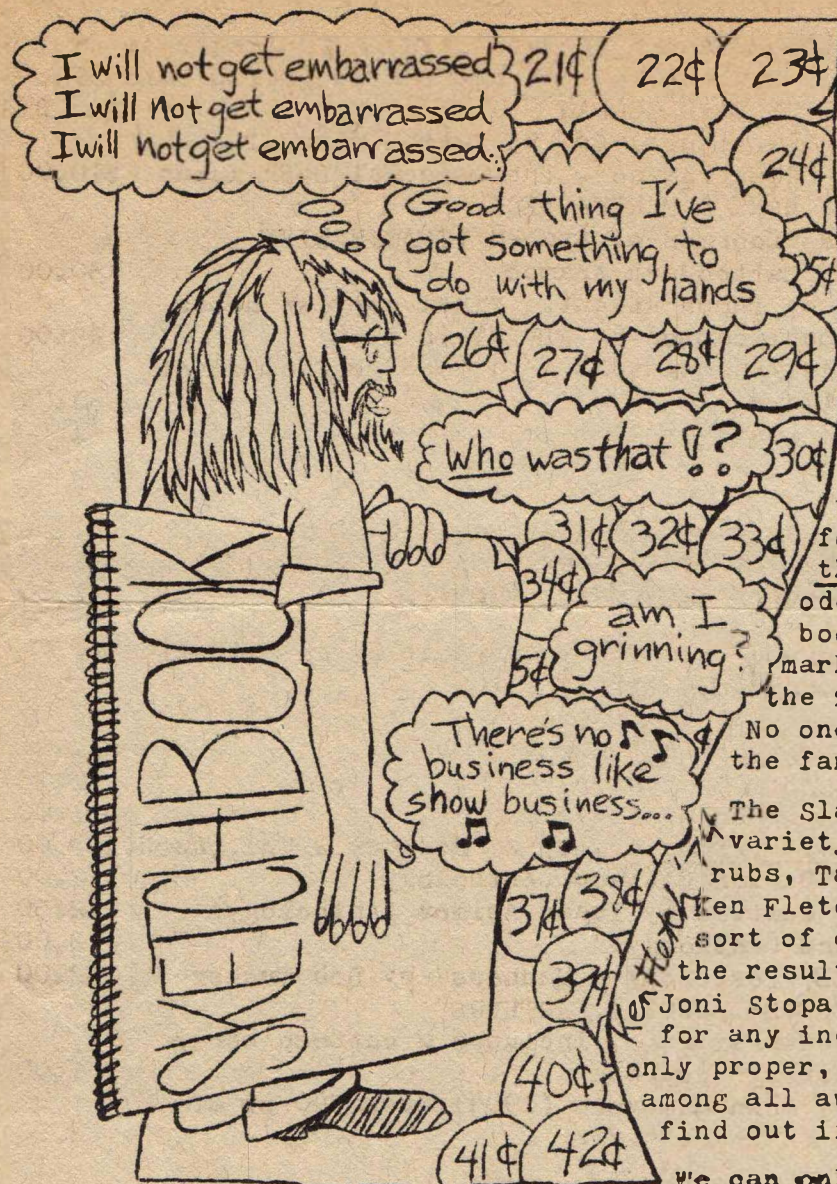 I will not get embarrassed
I will not get embarrassed
I will not get embarrassed.
21¢ 22¢ 23¢
24¢
Good thing I've
got something to
do with my hands
5¢
26¢ 27¢ 28¢ 29¢
Who was that !?
30¢
31¢ 32¢ 33¢
34¢
am I
grinning?
5¢
There's no
business like
show business...
¢
37¢ 38¢
39¢
40¢
41¢ 42¢
SKETCHBOOK
Ken Fletch
od
boo
mark
the
No one
the fan
The Sla
variet
rubs, Ta
Ken Fletc
sort of
the result
Joni Stopa
for any inc
only proper,
among all aw
find out i
We can onl